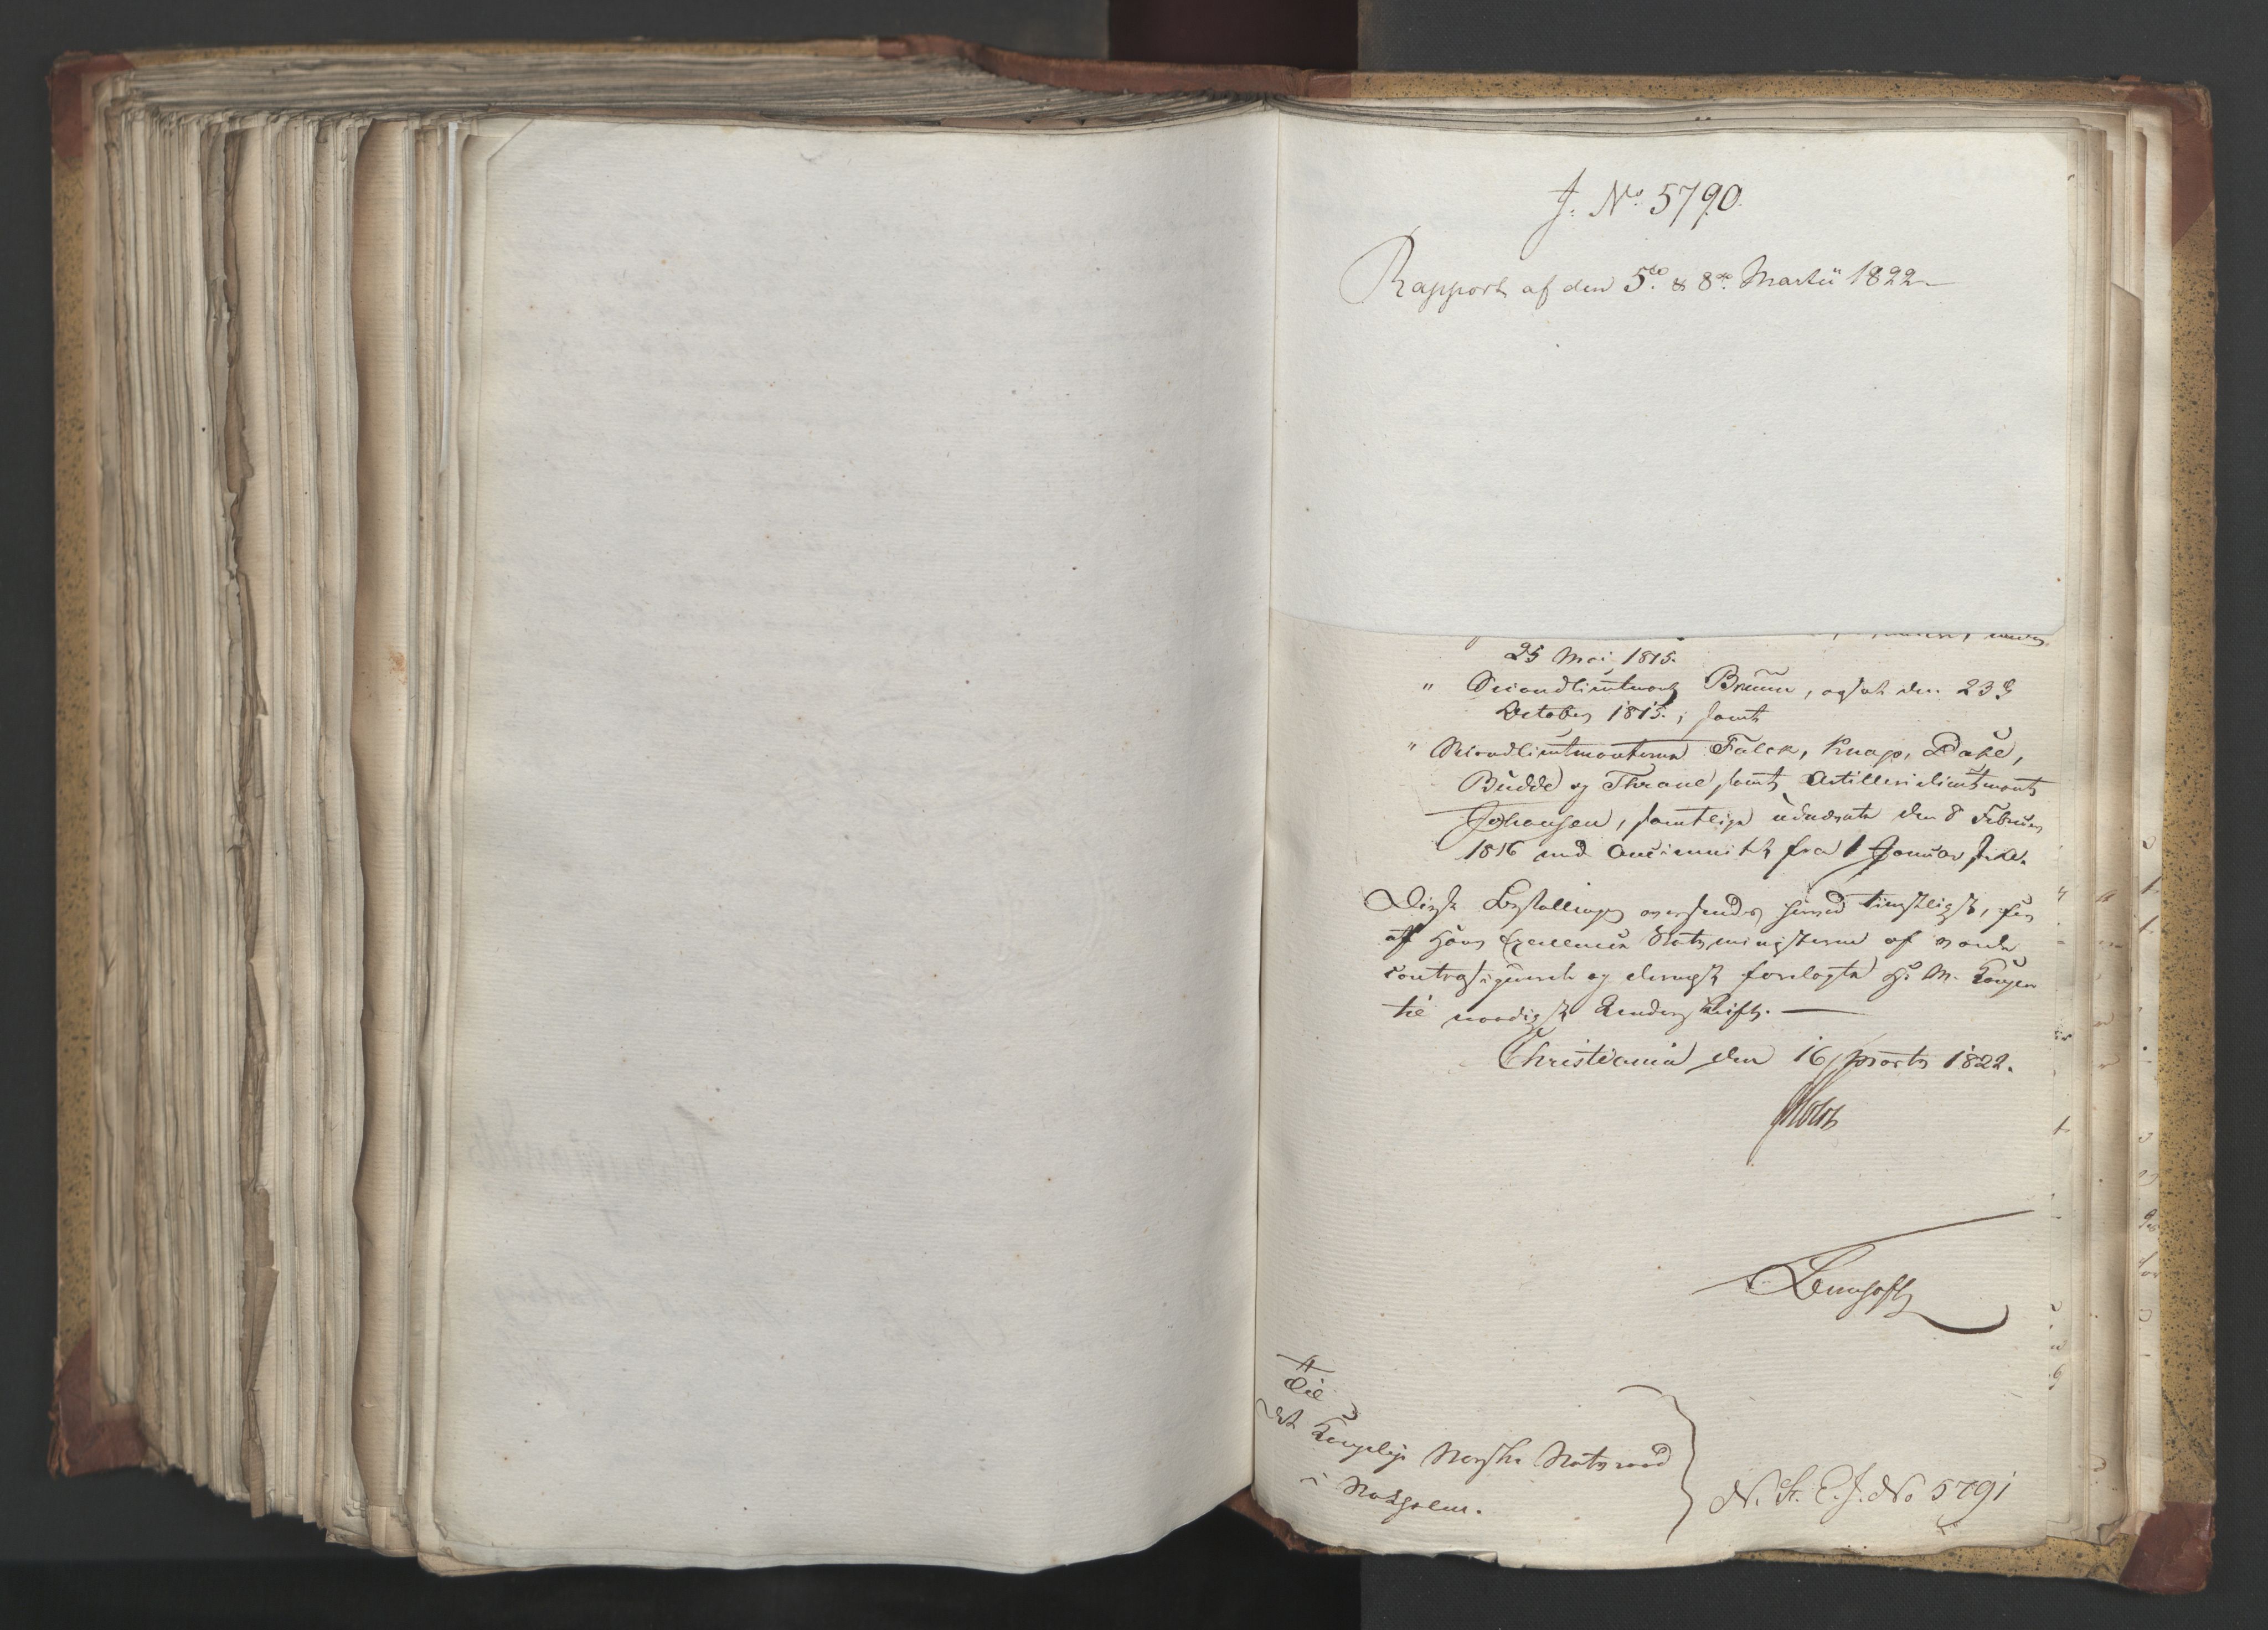 J. No. 5790.
Rapport af den 5te & 8de Martii 1822
25 Mai 1815.
" Secondlieutenant Bruun, ogsaa den 23de
October 1815; samt
" Secondlieutenanterne Falck, Knap, Dahl,
Budde og Thrane, samt Artillerielieutenant
Johansen, samtlige udnævnte den 8 Februar
1816 med Anciennitet fra 1 Januar s. A.
Disse Bestallinger oversendes herved tienstligst, for
af Hans Excellence Statsministeren at vorde
contrasigneret og dernæst forelagte Hs. M. Kongen
til naadigst Underskrift. —
Christiania den 16 Marts 1822.
Holst
Til
Det Kongelige Norske Statsraad
i Stokholm.
N. St. E. J. No 5791